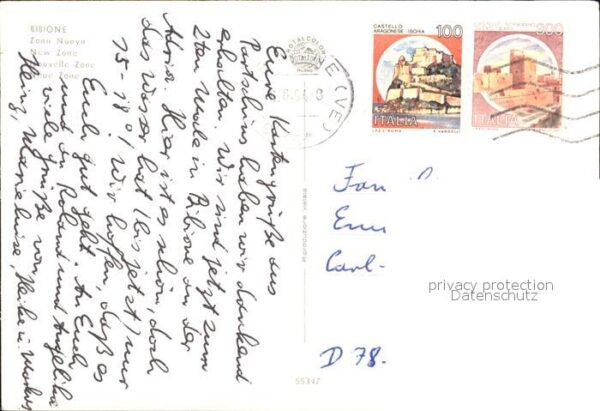 BIBIONE
Zona Nuova
New Zone
Nouvelle Zone
Neue Zone
Eure Kartengrüße aus
Partschins haben wir dankend
erhalten. Wir sind jetzt zum
2ten Male in Bibione an der
Adria. Hier ist es schön, doch
das Wasser hat (bis jetzt) nur
15-18°! Wir hoffen, daß es
Euch gut geht. An Euch
und an Roland und Angelika
viele Grüße von
Heinz, Marieluise, Heike u. Markus
ROTALCOLOR
MILANO
Riproduzione vietata
55347
NE (VE)
CASTELLO
ARAGONESE ISCHIA
100
ITALIA
I.P.Z.S. ROMA
E. VANGELLI
ITALIA
Fam
Carl-
D 78.
privacy protection
Datenschutz